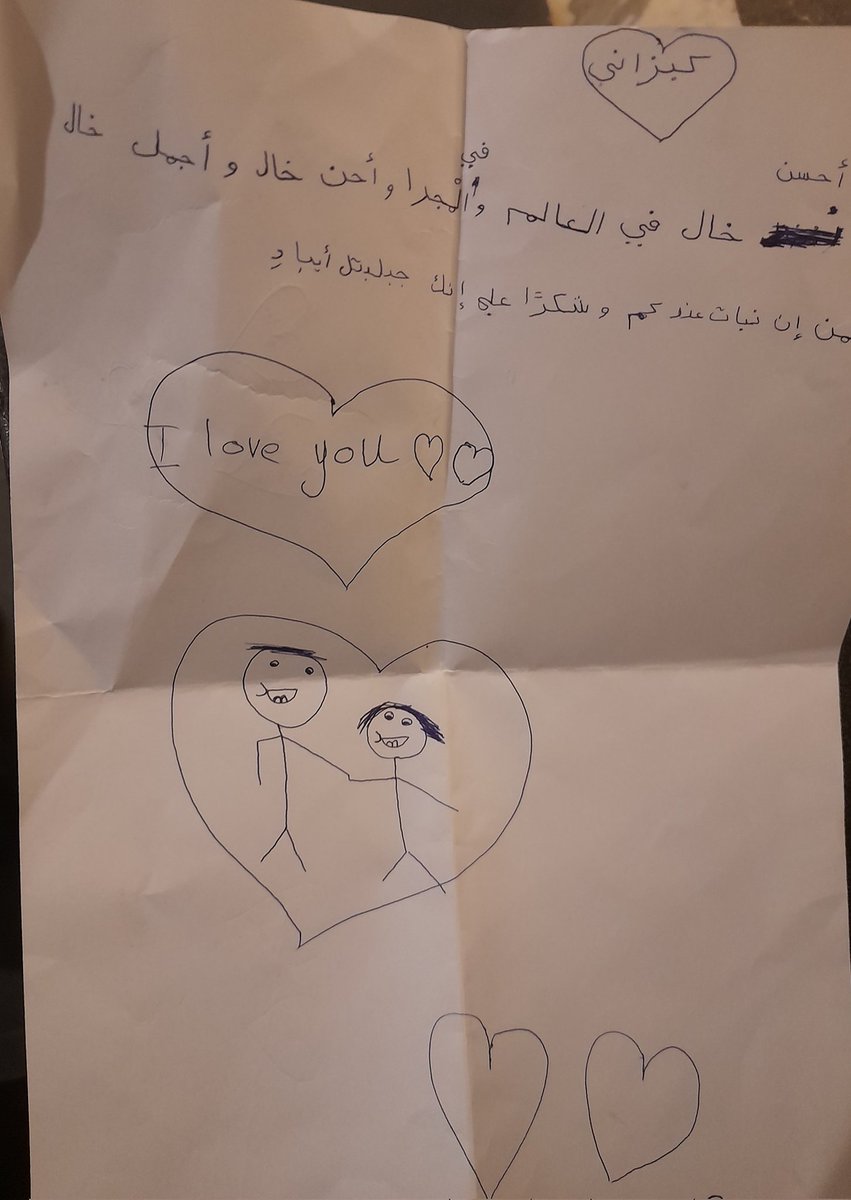 كيزاني
أحسن
خال في العالم وألمجدا وأحن خال و أجمل خال
في
من إن نبات عندكم وشكرًا على إنك
I love you